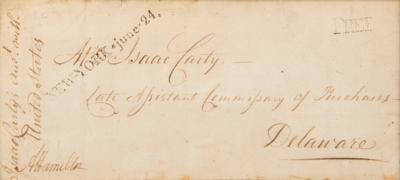 NEW-YORK * june 24.
FREE
Mr. Isaac Carty —
Late Assistant Commissary of Purchases —
Delaware
Isaac Carty's with
United States
AHamilton